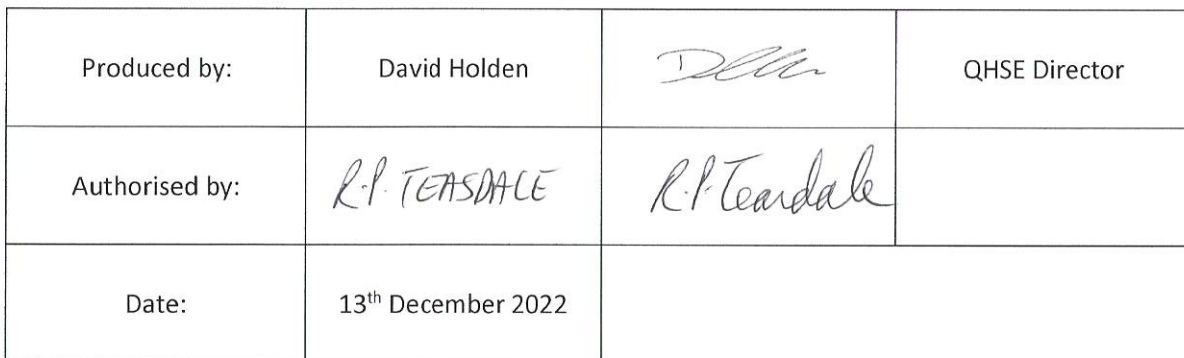 Produced by: David Holden QHSE Director
Authorised by: R.P. TEASDALE R.P. Teasdale
Date: 13th December 2022